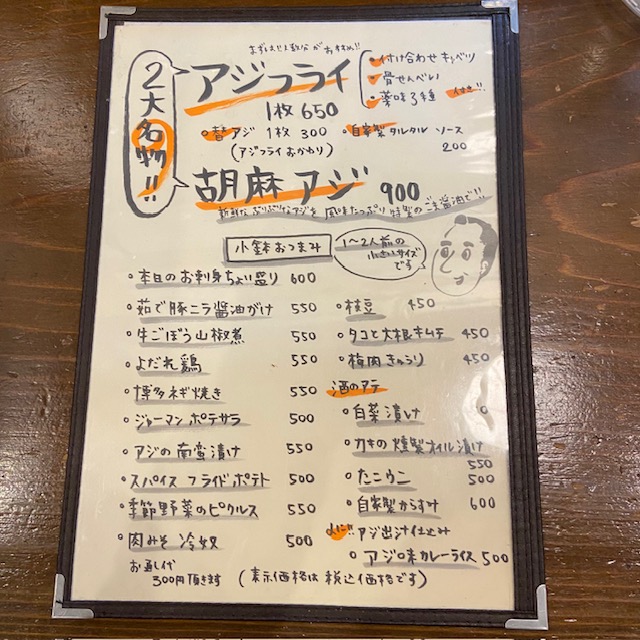 まずはじめに数分がおすすめ!!
2大名物!!
アジフライ
1枚 650
・付け合わせキャベツ
・骨せんべい
・薬味3種 付き!!
・替アジ 1枚 300
(アジフライおかわり)
・自家製タルタル ソース
200
胡麻アジ 900
新鮮なぷりぷりなアジを 風味たっぷり 特製のごま醤油で!!
小鉢おつまみ
1〜2人前の
小さいサイズ
です
・本日のお刺身ちょい盛り 600
・茹で豚ニラ醤油がけ 550
・牛ごぼう山椒煮 550
・よだれ鶏 550
・博多ネギ焼き 550
・ジャーマンポテサラ 500
・アジの南蛮漬け 550
・スパイス フライドポテト 500
・季節野菜のピクルス 550
・肉みそ 冷奴 500
お通し代
300円頂きます
・枝豆 450
・タコと大根キムチ 450
・梅肉きゅうり 450
酒のアテ
・白菜漬け
・カキの燻製オイル漬け
550
・たこウニ 500
・自家製からすみ 600
〆に!! アジ出汁仕込み
・アジ味カレーライス 500
(表示価格は 税込価格です)